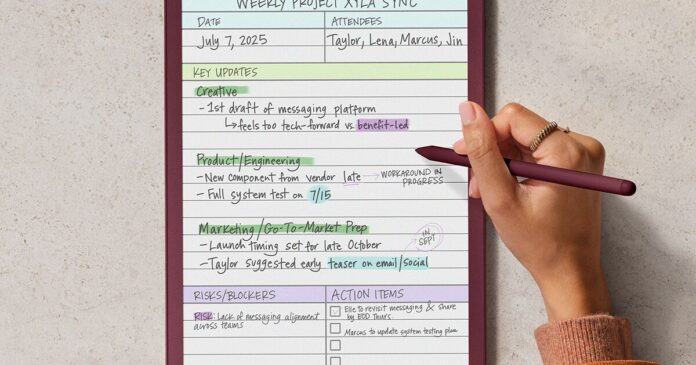 WEEKLY PROJECT XYLA SYNC
DATE
ATTENDEES
July 7, 2025
Taylor, Lena, Marcus, Jin
KEY UPDATES
Creative
- 1st draft of messaging platform
↳ feels too tech-forward vs benefit-led
Product/Engineering
- New component from vendor late → WORKAROUND IN
PROGRESS
- Full system test on 7/15
Marketing/Go-To-Market Prep
- Launch timing set for late October
IN
SEPT
- Taylor suggested early teaser on email/social
RISKS/BLOCKERS
ACTION ITEMS
RISK: Lack of messaging alignment
across teams
Elle to revisit messaging & share
by EOD Thurs.
Marcus to update system testing plan